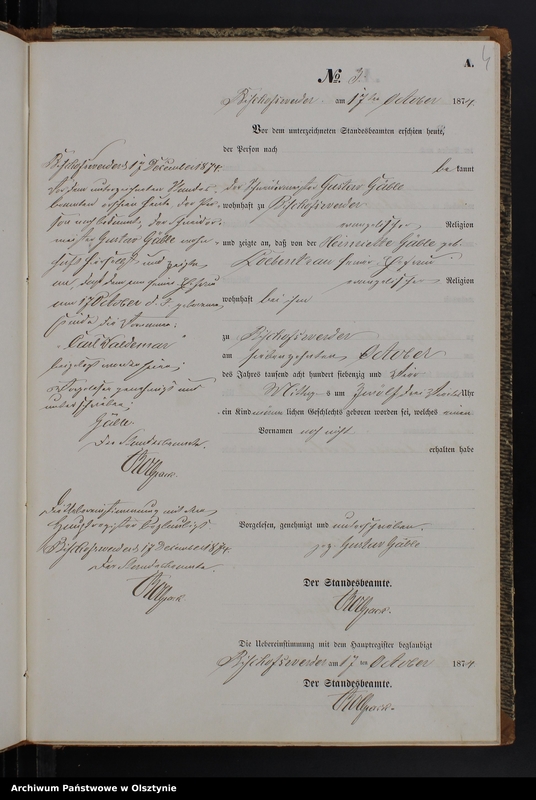 A.
4
No. 3
Bischofswerder am 17ten October 1874.
Vor dem unterzeichneten Standesbeamten erschien heute,
der Person nach
be kannt
der Schneidermeister Gustav Gäble
wohnhaft zu Bischofswerder
evangelischer Religion
und zeigte an, daß von der Henriette Gäble geb.
seiner Ehefrau
evangelischer Religion
wohnhaft bei ihm
zu Bischofswerder
am siebenzehnten October
des Jahres tausend acht hundert siebenzig und vier
Mittags um zwölf drei Viertel Uhr
ein Kind männlichen Geschlechts geboren worden sei, welches einen
Vornamen noch nicht
erhalten habe
Vorgelesen, genehmigt und unterschrieben.
gez. Gustav Gäble
Der Standesbeamte.
Die Uebereinstimmung mit dem Hauptregister beglaubigt
Bischofswerder am 17ten October 1874
Der Standesbeamte.
Bischofswerder 17 December 1874.
Vor dem unterzeichneten Standes-
beamten erschien heute, der Per-
son nach bekannt, der Schneider-
meister Gustav Gäble wohn-
haft hierselbst und zeigte
an, daß dem von seiner Ehefrau
am 17 October d. J. geborenen
Kinde die Vornamen
"Carl Waldemar"
beigelegt worden seien.
Vorgelesen genehmigt und
unterschrieben
Gäble
Der Standesbeamte.
Die Uebereinstimmung mit dem
Hauptregister beglaubigt
Bischofswerder 17 December 1874.
Der Standesbeamte.
Archiwum Państwowe w Olsztynie